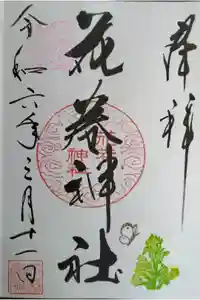 奉拝
花巻神社
令和六年三月十一日